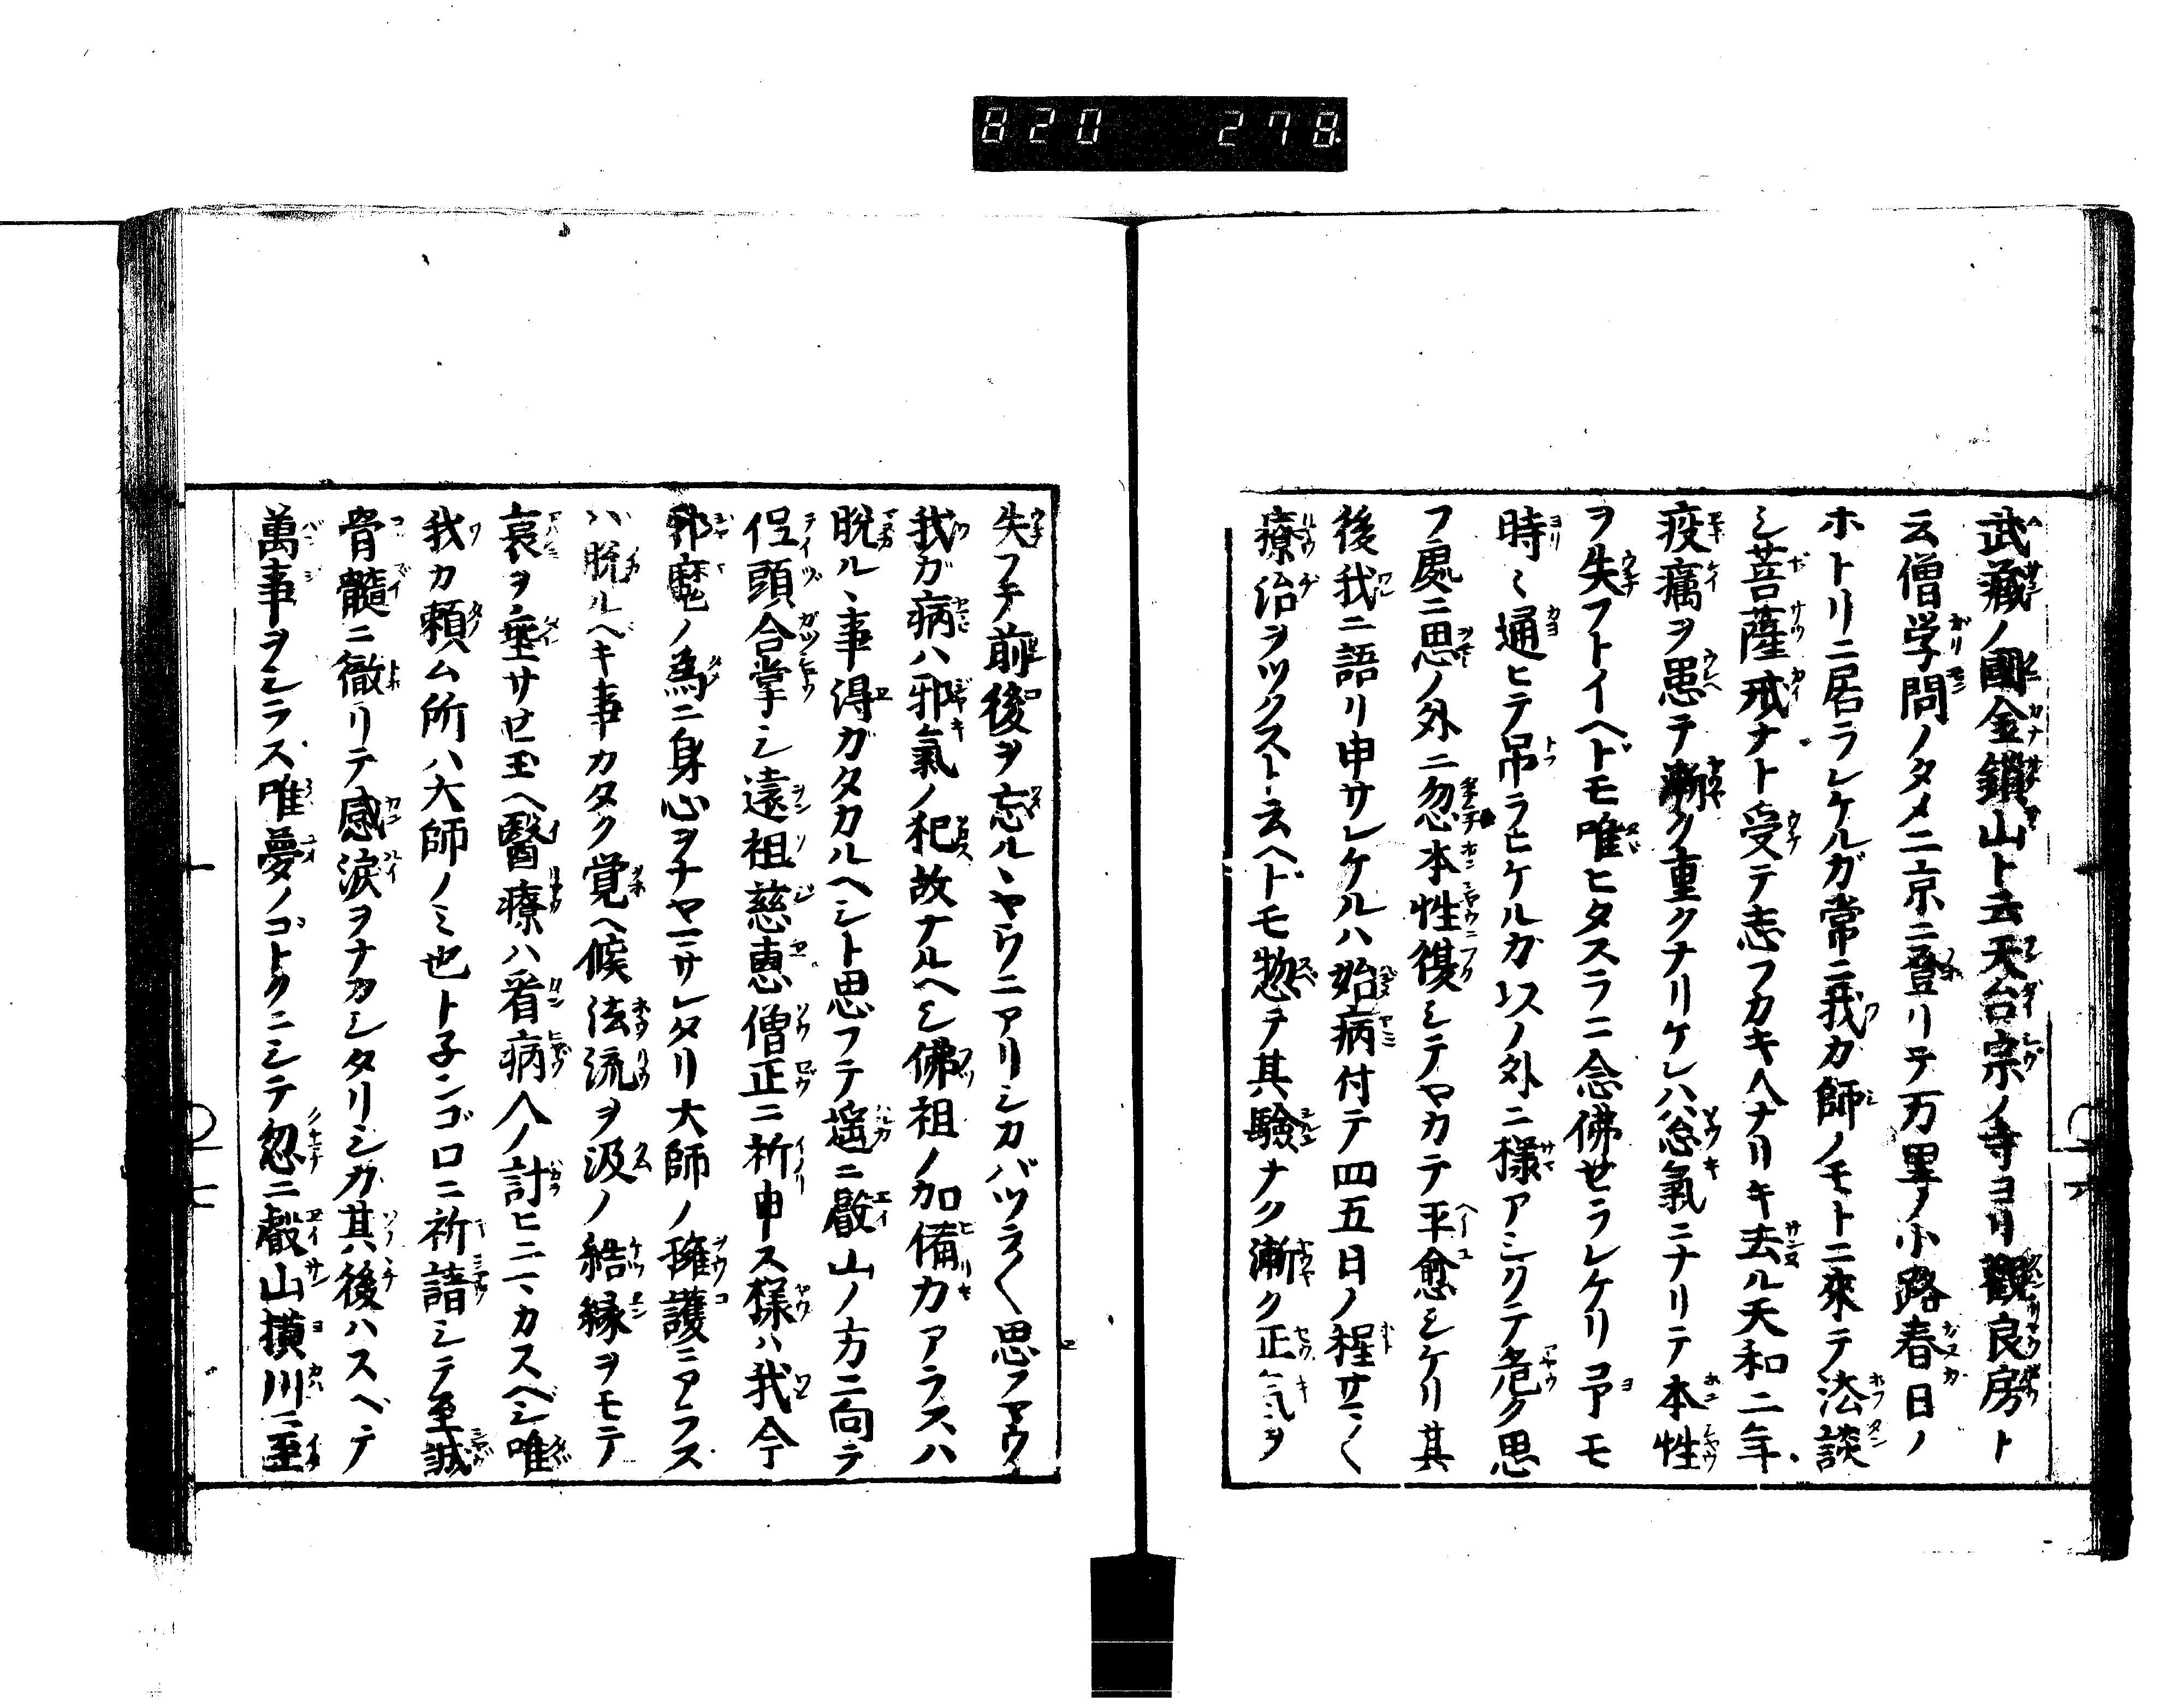 820 278
武藏ノ國金鑚山ト云天台宗ノ寺ヨリ觀良房ト
云僧学問ノタメニ京ニ登リテ万里ノ小路春日ノ
ホトリニ居ラレケルガ常ニ我カ師ノモトニ來テ法談
シ菩薩戒ナト受テ志フカキ人ナリキ去ル天和二年
疫癘ヲ患テ漸ク重クナリケレハ忩氣ニナリテ本性
ヲ失フトイヘドモ唯ヒタスラニ念佛せラレケリ予モ
時ミ通ヒテ吊ラヒケルカ以ノ外ニ樣アシクテ危ク思
フ處ニ思ノ外ニ忽本性復シテヤカテ平愈シケリ其
後我ニ語リ申サレケルハ始病付テ四五日ノ程サマ〱
療治ヲツクスト云ヘドモ惣テ其驗ナク漸ク正氣ヲ
失フテ前後ヲ忘ルヽヤウニアリシカバツラ〱思フヤウ
我ガ病ハ邪氣ノ犯故ナルヘシ佛祖ノ加備力アラスハ
脱ルヽ事得ガタカルヘシト思フテ遥ニ叡山ノ方ニ向テ
低頭合掌シ遠祖慈惠僧正ニ祈申ス樣ハ我今
邪魔ノ爲ニ身心ヲナヤマサレタリ大師ノ擁護ニアラス
ハ脱ルベキ事カタク覚ヘ候法流ヲ汲ノ結縁ヲモテ
哀ヲ垂サせ玉ヘ醫療ハ看病人ノ計ヒニマカスベシ唯
我カ頼ム所ハ大師ノミ也ト子ンゴロニ祈請シテ至誠
骨髓ニ徹リテ感涙ヲナカシタリシカ其後ハスベテ
萬事ヲシラス唯夢ノゴトクニシテ忽ニ叡山横川ニ至